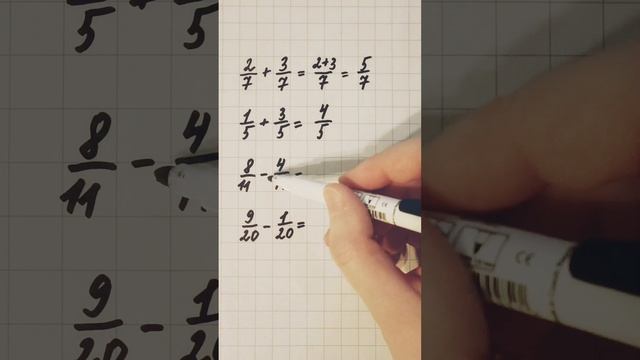 2/7 + 3/7 = 2+3/7 = 5/7
1/5 + 3/5 = 4/5
8/11 - 4/
9/20 - 1/20 =